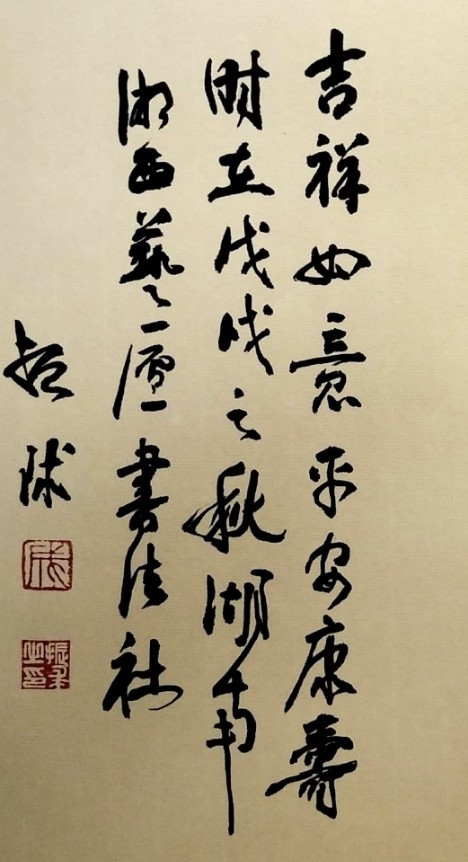 吉祥如意平安康寿
时在戊戌之秋湖南
湘西艺庐书法社
振球